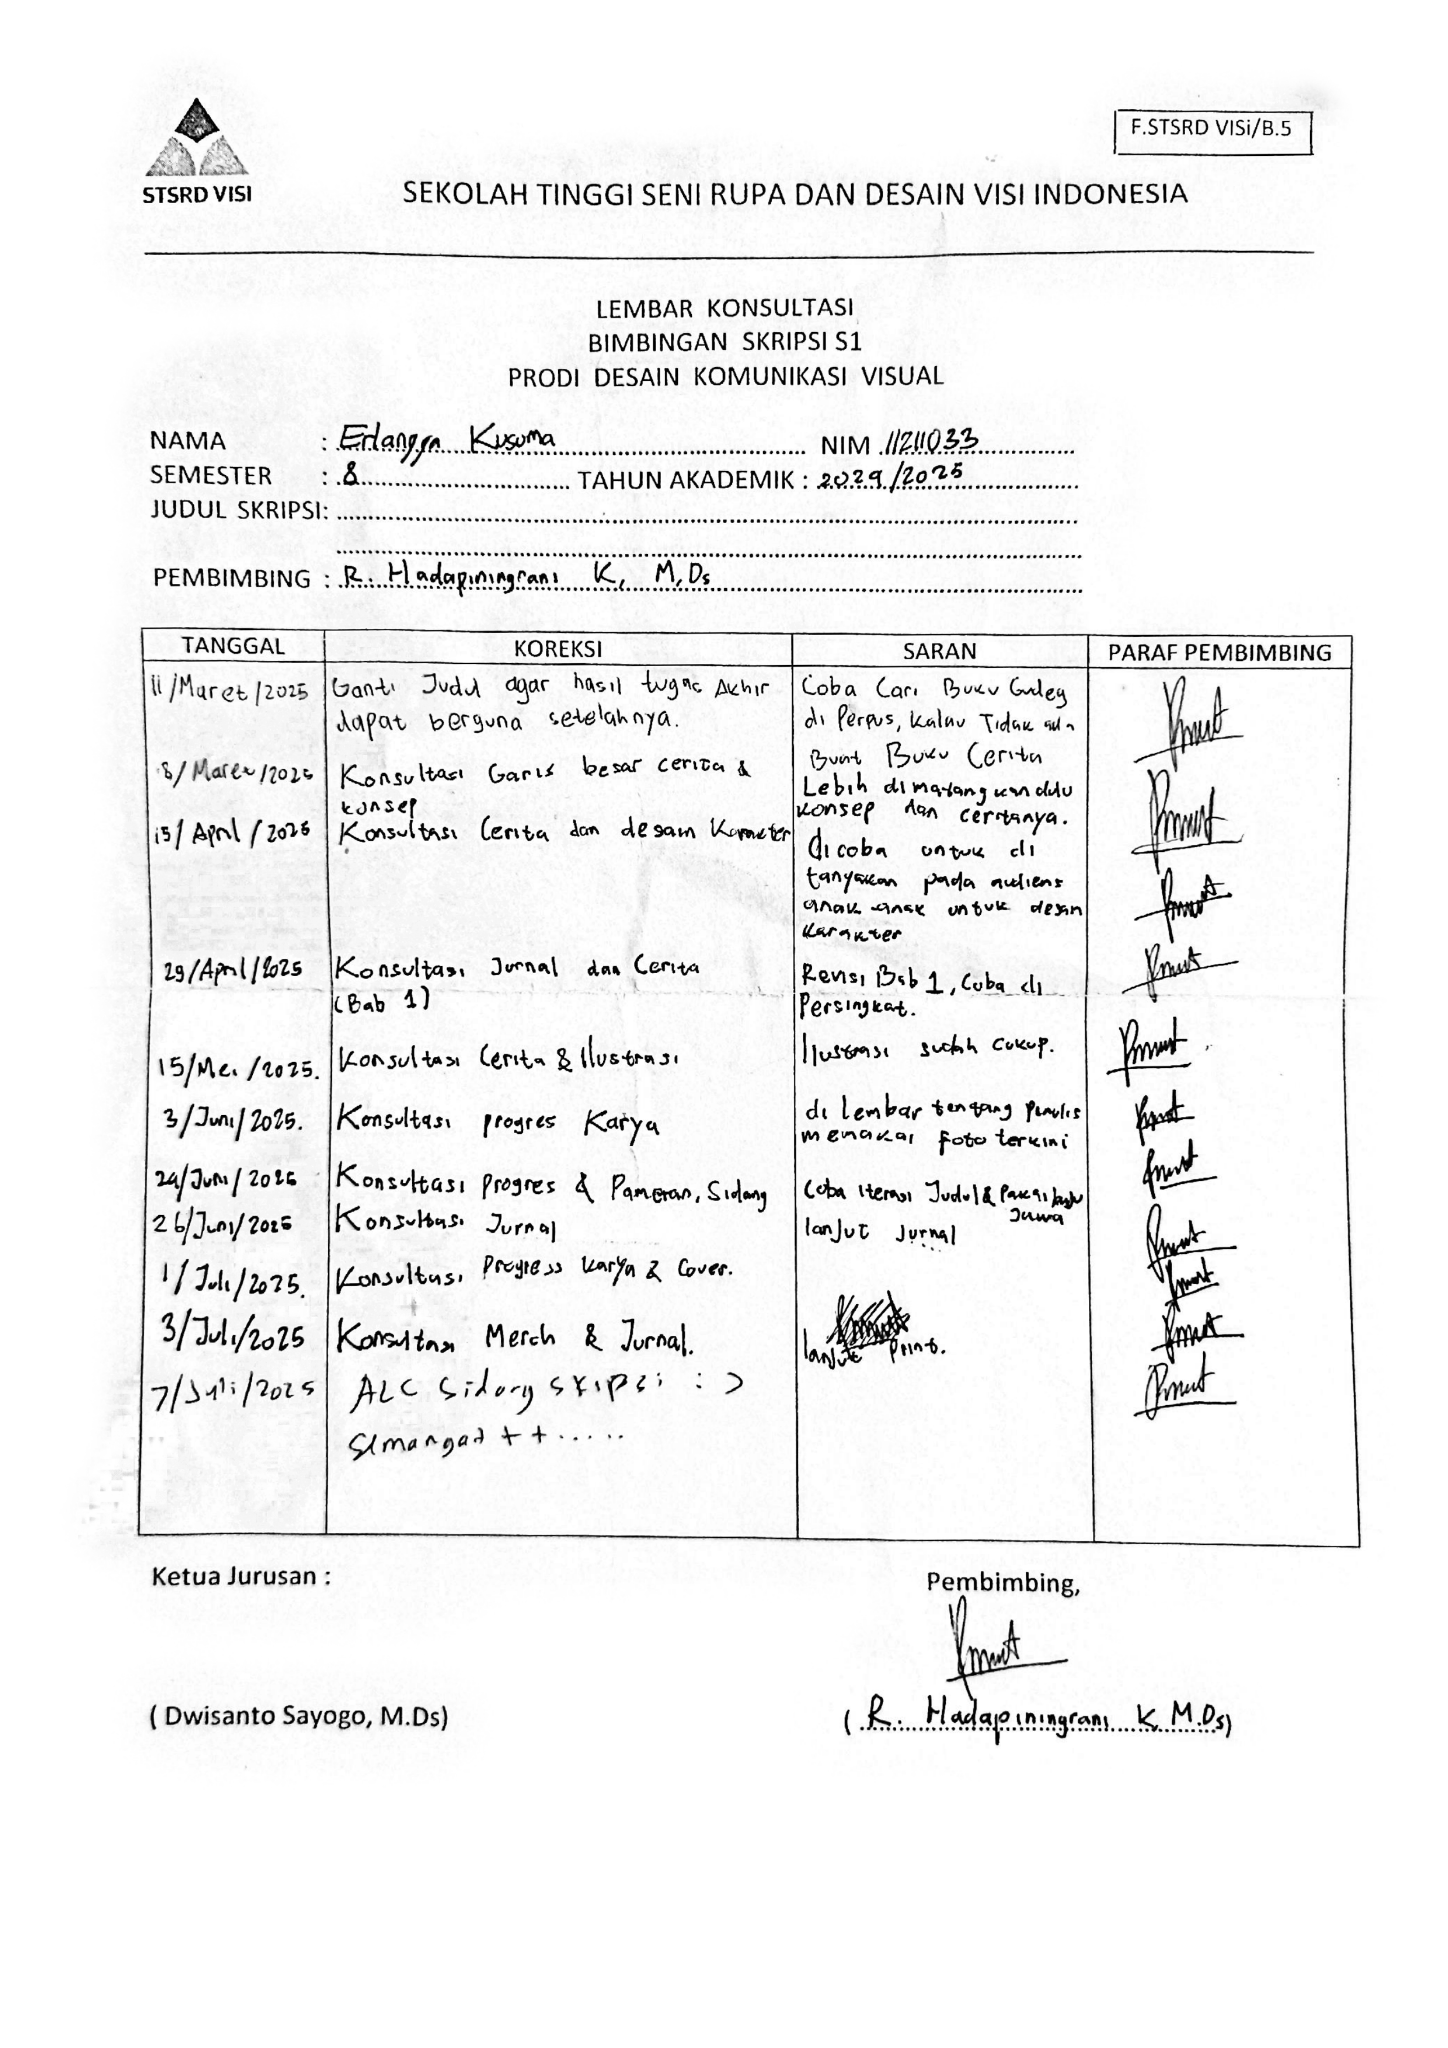 STSRD VISI
F.STSRD VISi/B.5
SEKOLAH TINGGI SENI RUPA DAN DESAIN VISI INDONESIA
LEMBAR KONSULTASI
BIMBINGAN SKRIPSI S1
PRODI DESAIN KOMUNIKASI VISUAL
NAMA : Erlangga Kusuma NIM 11211033
SEMESTER : 8 TAHUN AKADEMIK : 2024/2025
JUDUL SKRIPSI:
PEMBIMBING : R. Hadapiningrani K, M,Ds
TANGGAL KOREKSI SARAN PARAF PEMBIMBING
11/Maret/2025 Ganti Judul agar hasil tugas Akhir Coba Cari Buku
dapat berguna setelahnya. di Perpus, Kalau Tidak ada
Buat Buku Cerita
8/Maret/2025 Konsultasi Garis besar cerita & Lebih dimatangkan dulu
konsep konsep dan ceritanya.
15/April/2025 Konsultasi Cerita dan desain Karakter
dicoba untuk di
tanyakan pada audiens
anak-anak untuk desain
karakter
29/April/2025 Konsultasi Jurnal dan Cerita Revisi Bab 1, Coba di
(Bab 1) Persingkat.
15/Mei/2025. Konsultasi Cerita & Ilustrasi Ilustrasi sudah cukup.
3/Juni/2025. Konsultasi progres Karya di lembar tentang penulis
menakai foto terkini
24/Juni/2025 Konsultasi progres & Pameran, Sidang Coba iterasi Judul & Pakai
Jawa
26/Juni/2025 Konsultasi Jurnal lanjut Jurnal
1/Juli/2025. Konsultasi Progress karya & Cover.
3/Juli/2025 Konsultasi Merch & Jurnal. lanjut Print.
7/Juli/2025 ACC Sidang skipsi : )
Semangat ++.....
Ketua Jurusan :
Pembimbing,
( Dwisanto Sayogo, M.Ds)
( R. Hadapiningrani K, M.Ds)